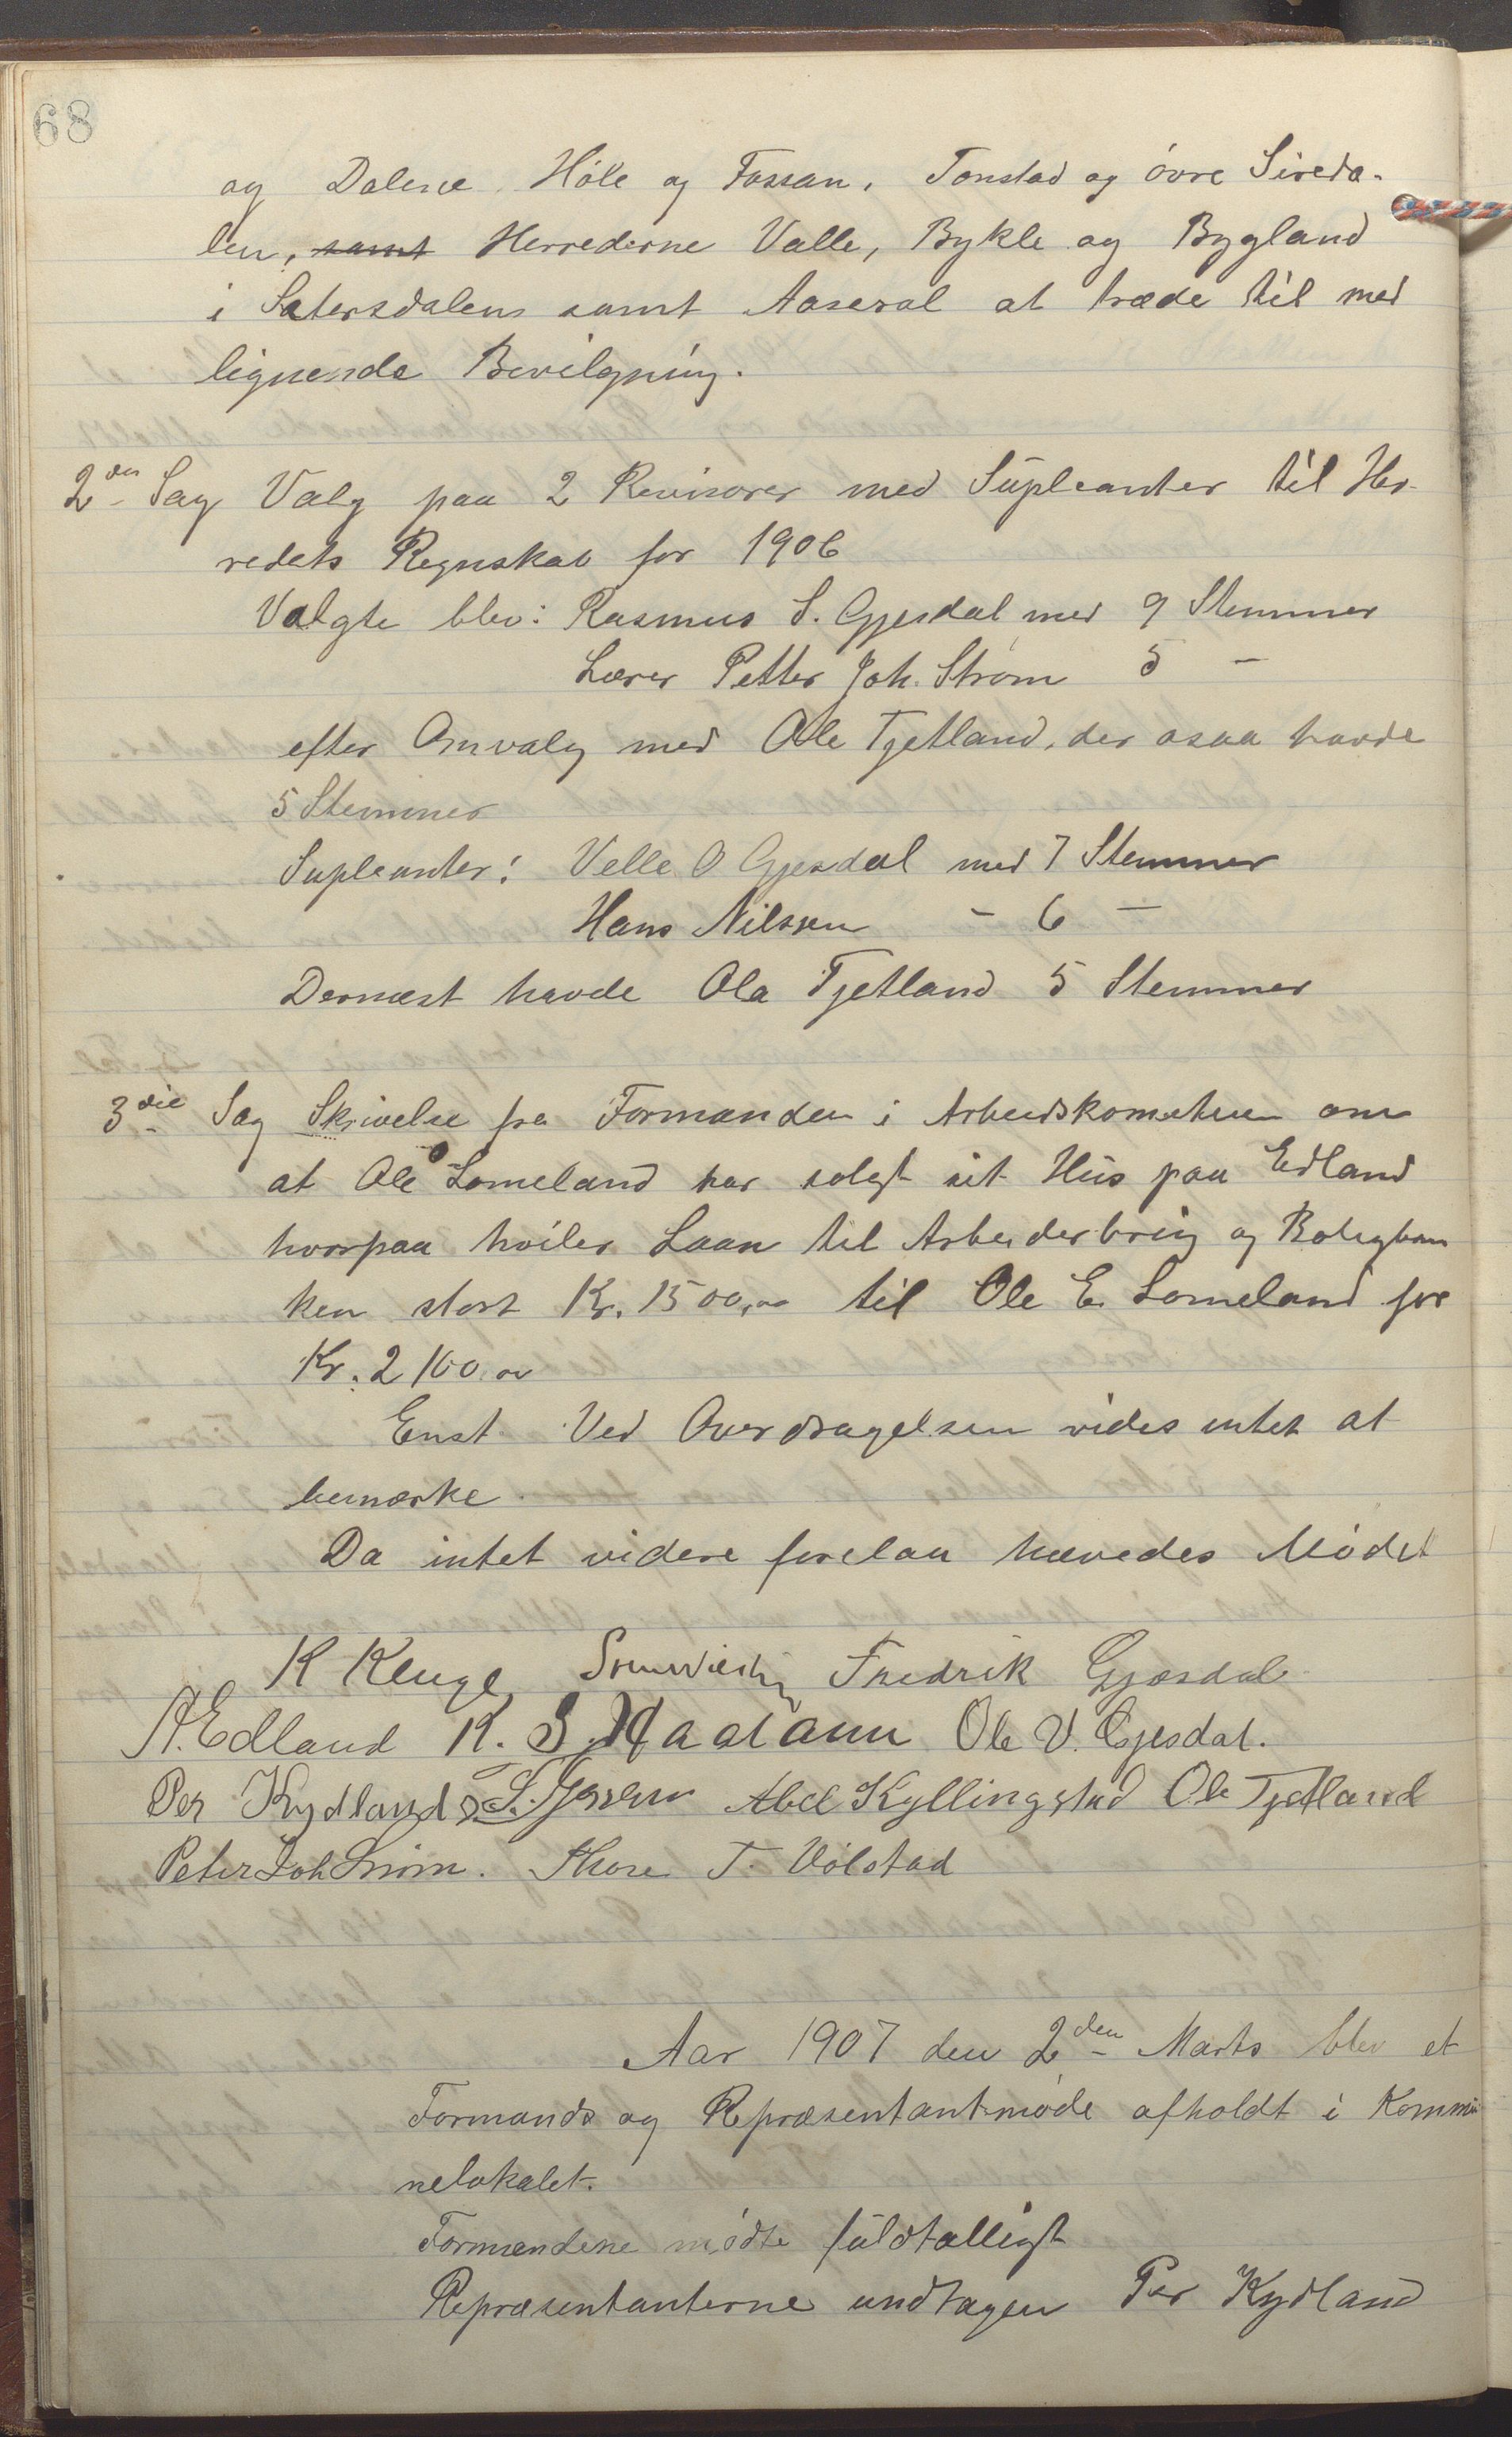 68
og Dalene Høle og Fossan, Tonstad og øvre Sireda-
len, samt Herrederne Valle, Bykle og Bygland
i Sætersdalen samt Aaseral at træde til med
lignende Bevilgning.
2den Sag Valg paa 2 Revisorer med Supleanter til Her-
redets Regnskab for 1906
Valgte blev: Rasmus S. Gjesdal med 9 Stemmer
Lærer Petter Joh. Strøm 5 -
efter Omvalg med Ole Tjetland, der osaa havde
5 Stemmer
Supleanter: Velle O Gjesdal med 7 Stemmer
Hans Nilssen - 6 -
Dernæst havde Ola Tjetland 5 Stemmer
3die Sag Skrivelse fra Formanden i Arbeidskomiteen om
at Ole Lomeland har solgt sit Hus paa Edland
hvorpaa hviler Laan til Arbeiderbrug og Boligban
ken stort Kr. 1500,00 til Ole E. Lomeland for
Kr. 2100,00
Enst. Ved Overdragelsen vides intet at
bemærke.
Da intet videre forelaa hævedes Mødet
K Kluge Fredrik Gjesdal
A. Edland K. S. Ole V. Gjesdal.
Per Kydland Abel Kyllingstad Ole Tjetland
Peter Joh Strøm. Thore T. Vølstad
Aar 1907 den 2den Marts blev et
Formands og Repræsentantmøde afholdt i Kommu
nelokalet.
Formændene mødte fuldtalligt
Repræsentanterne undtagen Per Kydland